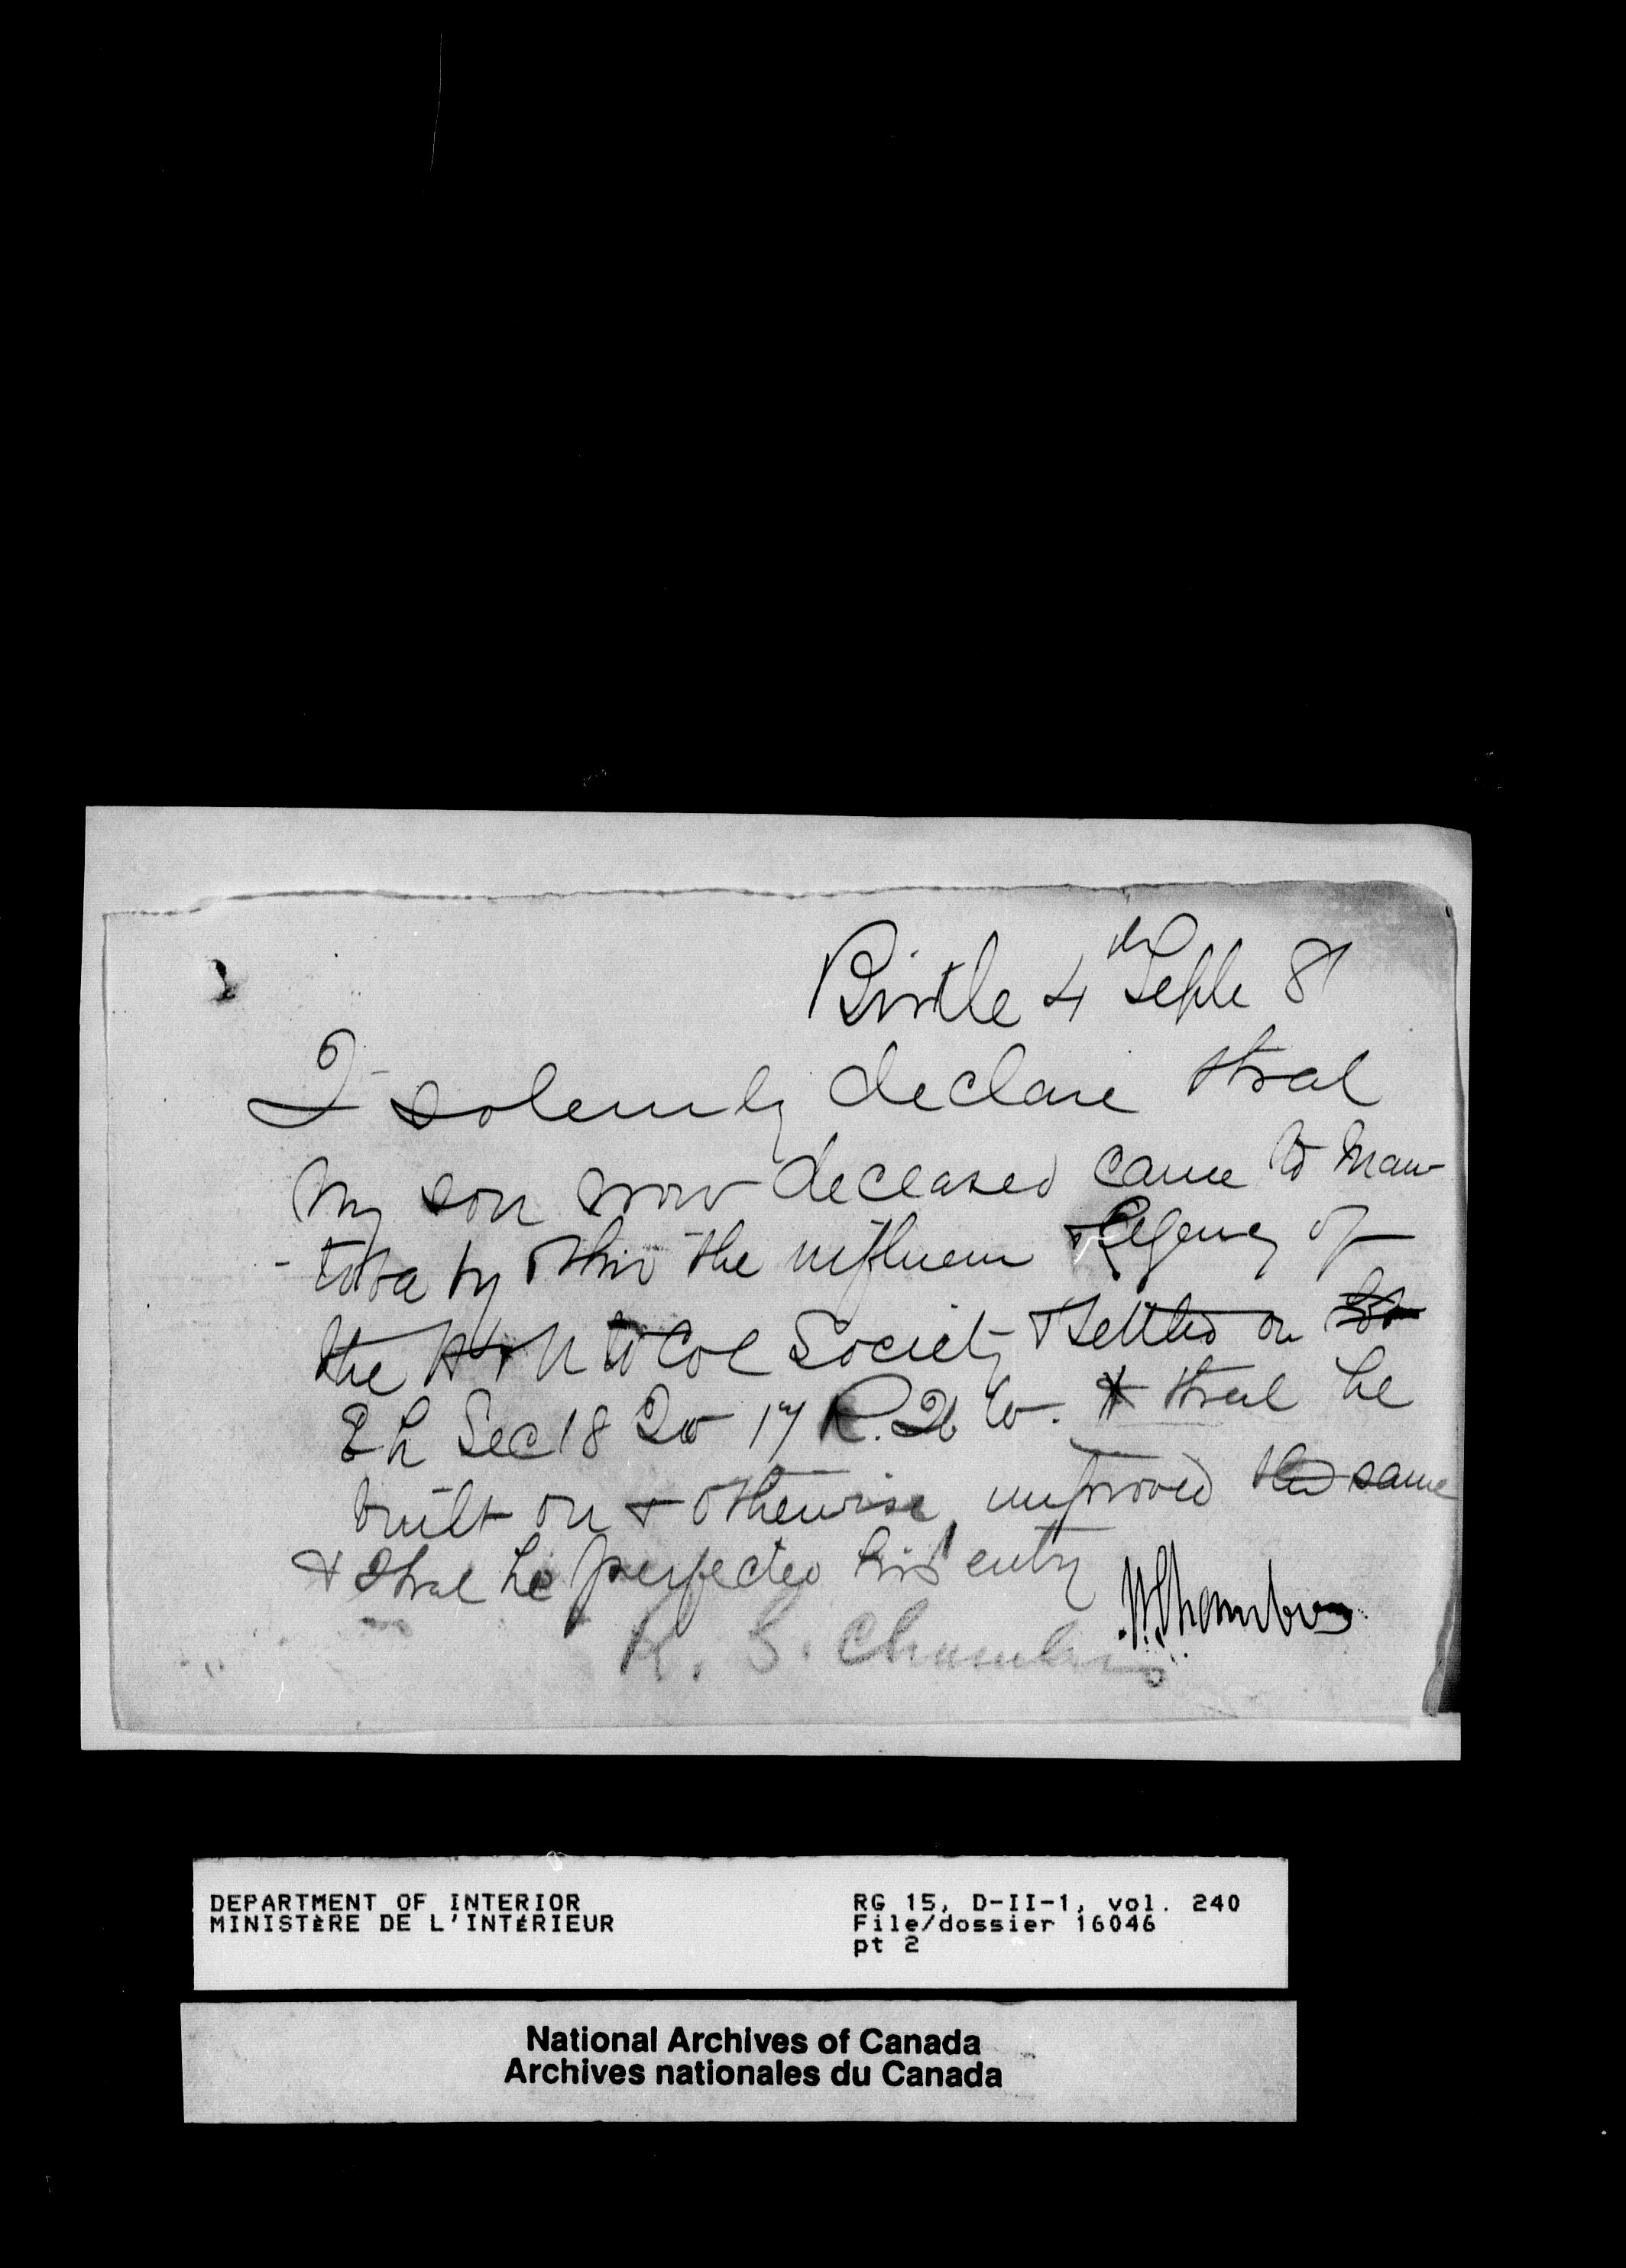 Birtle 4th Septe 81
I solemnly declare that
my son now deceased came to Mani
-toba by & thro the influence & Agency of
the & N W Col Society & Settled on
E ½ Sec 18 To 17 R. 26 W. & that he
built on & otherwise improved the same
& that he perfected his entry
R. S. Chambers
DEPARTMENT OF INTERIOR
MINISTÈRE DE L'INTÉRIEUR
RG 15, D-II-1, vol. 240
File/dossier 16046
pt 2
National Archives of Canada
Archives nationales du Canada